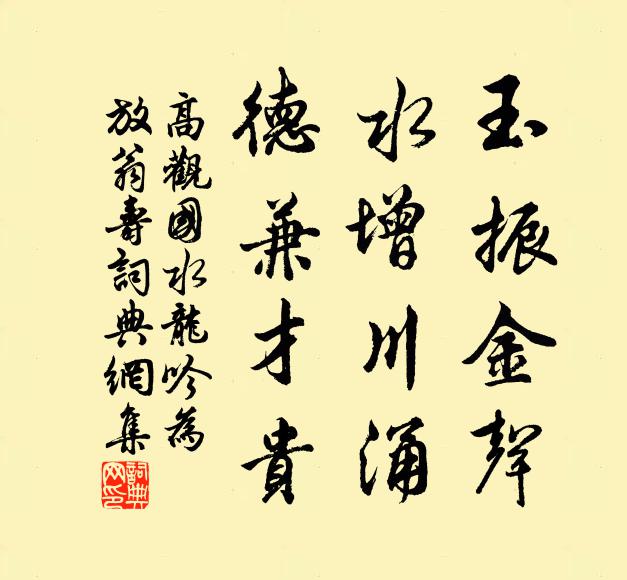 玉振金聲
水增川涌
德兼才貴
高觀國水龍吟為
放翁壽詞典網集
詞典网印